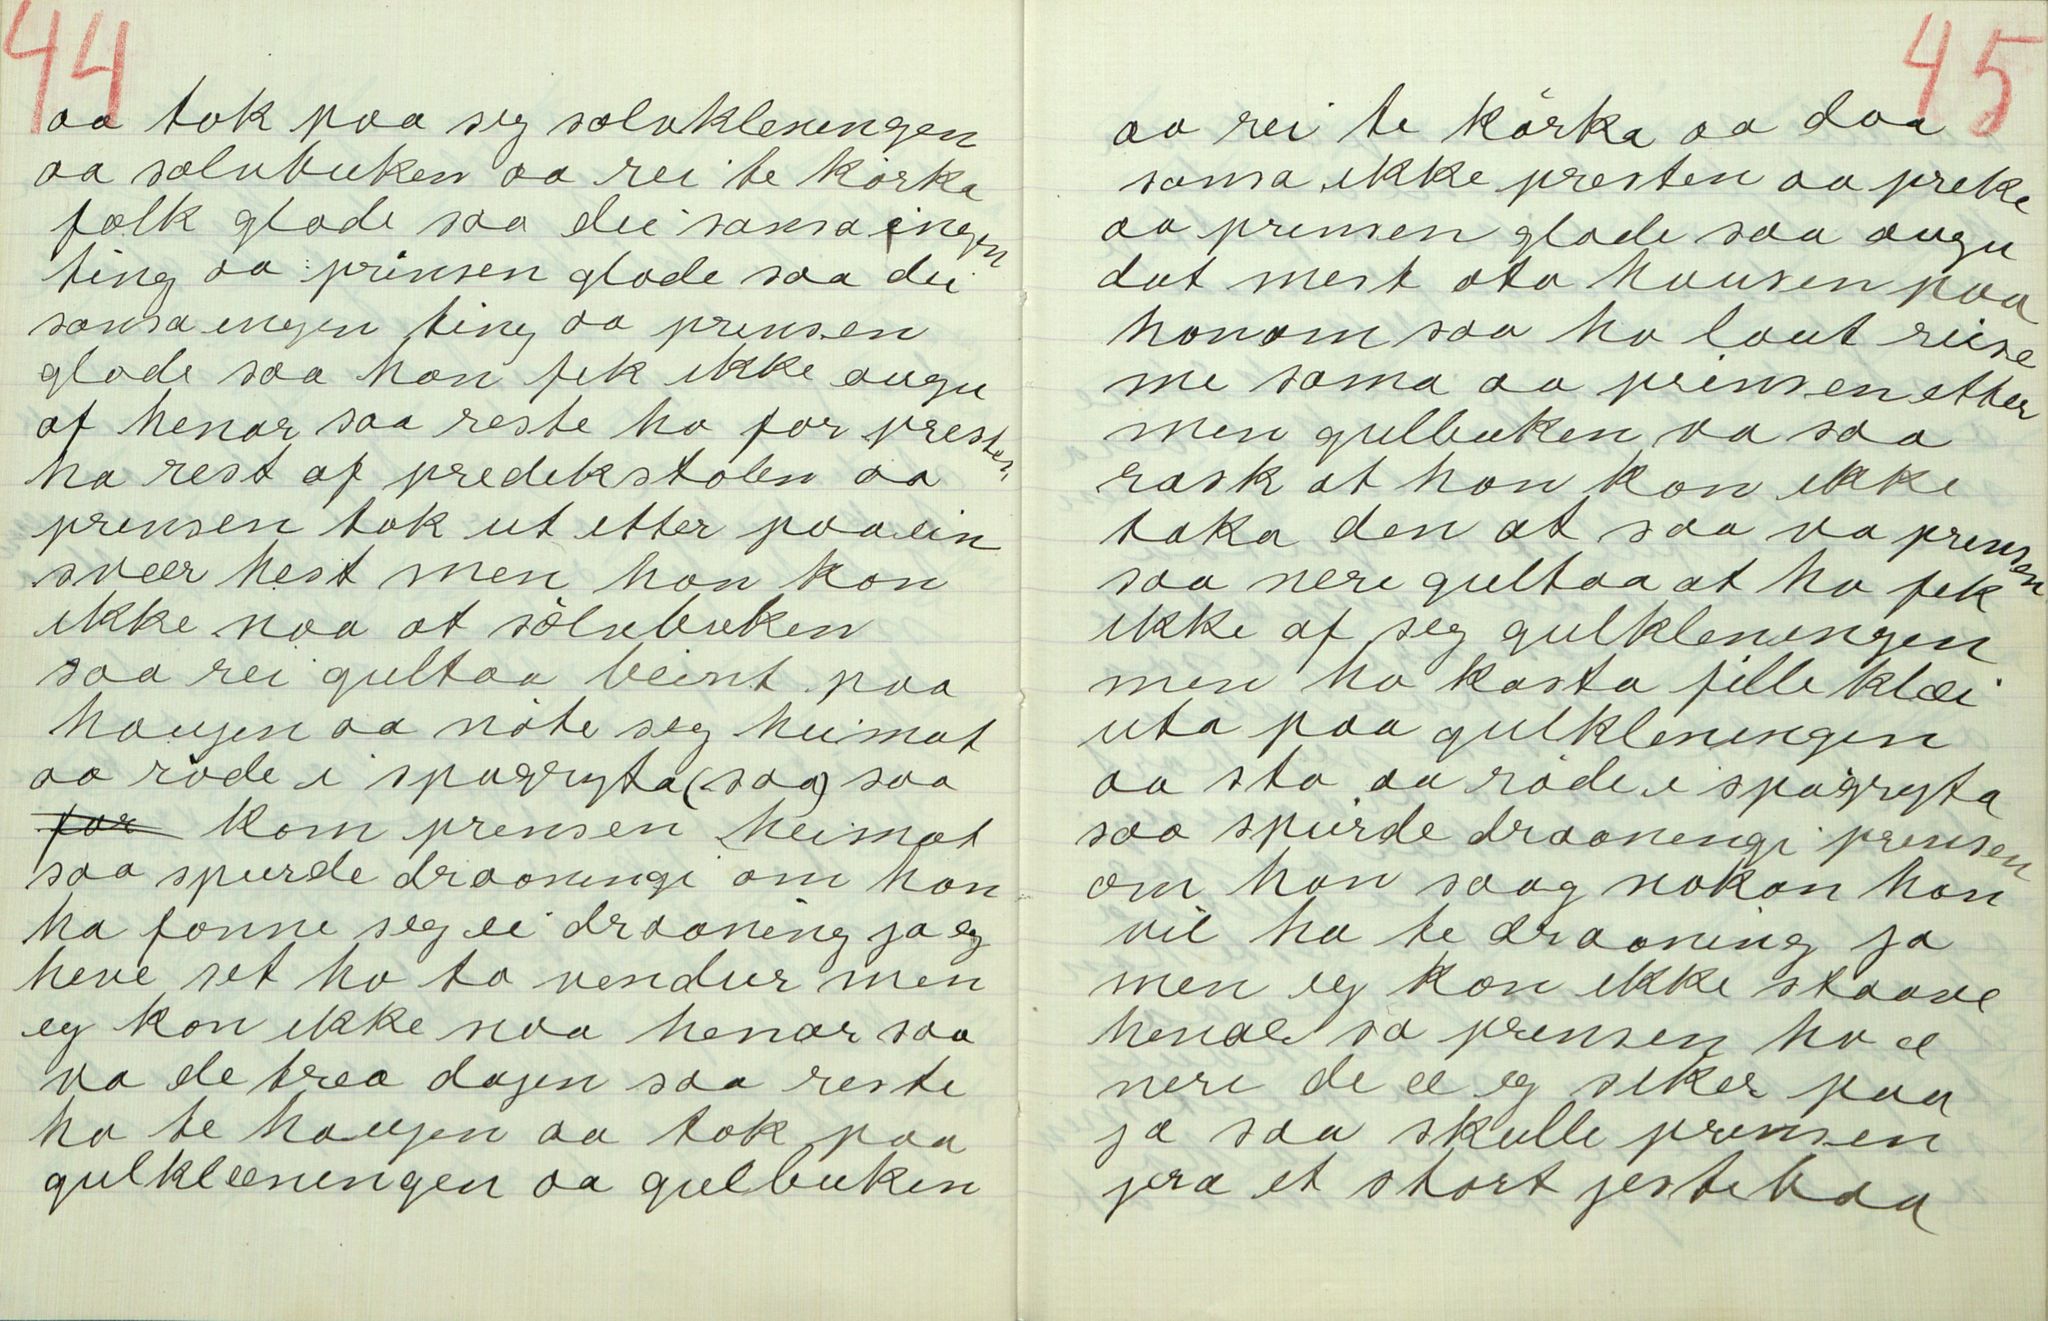 44
aa tok paa seg sølvkleningen
aa sølvbuken aa rei te kørka
folk glode saa dei sansa ingen
ting aa prinsen glode saa dei
sansa ingen ting aa prinsen
glode saa han fek ikke augu
af henar saa reste ho før presten
ha rest af predikstolen aa
prinsen tok ut etter paa ein
sveer hest men han kon
ikke naa at sølvbuken
saa rei gultaa beint paa
haugen aa nøte seg heimat
aa røde i spøgryta (saa) saa
før kom prinsen heimat
saa spurde draaningi om han
ha fonne seg ei draaning ja eg
heve set ho to vendur men
eg kon ikke naa henar saa
va de trea dagen saa reste
ho te haugen aa tok paa
gulkleeningen aa gulbuken
45
aa rei te kørka aa daa
sansa ikke presten aa preke
aa prinsen glode saa augu
dat mest ota hausen paa
honom saa ho laut reise
me sama aa prinsen etter
men gulbuken va saa
rask at han kon ikke
taka den at saa va prinsen
saa nere gultaa at ho fek
ikke af seg gulkleningen
men ho kasta fille klæi
uta paa gulkleningen
aa sto aa røde i spøgryta
saa spurde draaningi prinsen
om han saag nokon han
vil ha te draaning ja
men eg kon ikke staave
henar sa prinsen ho æ
nere de æ eg siker paa
ja saa skulle prinsen
jera et stort jestebaa